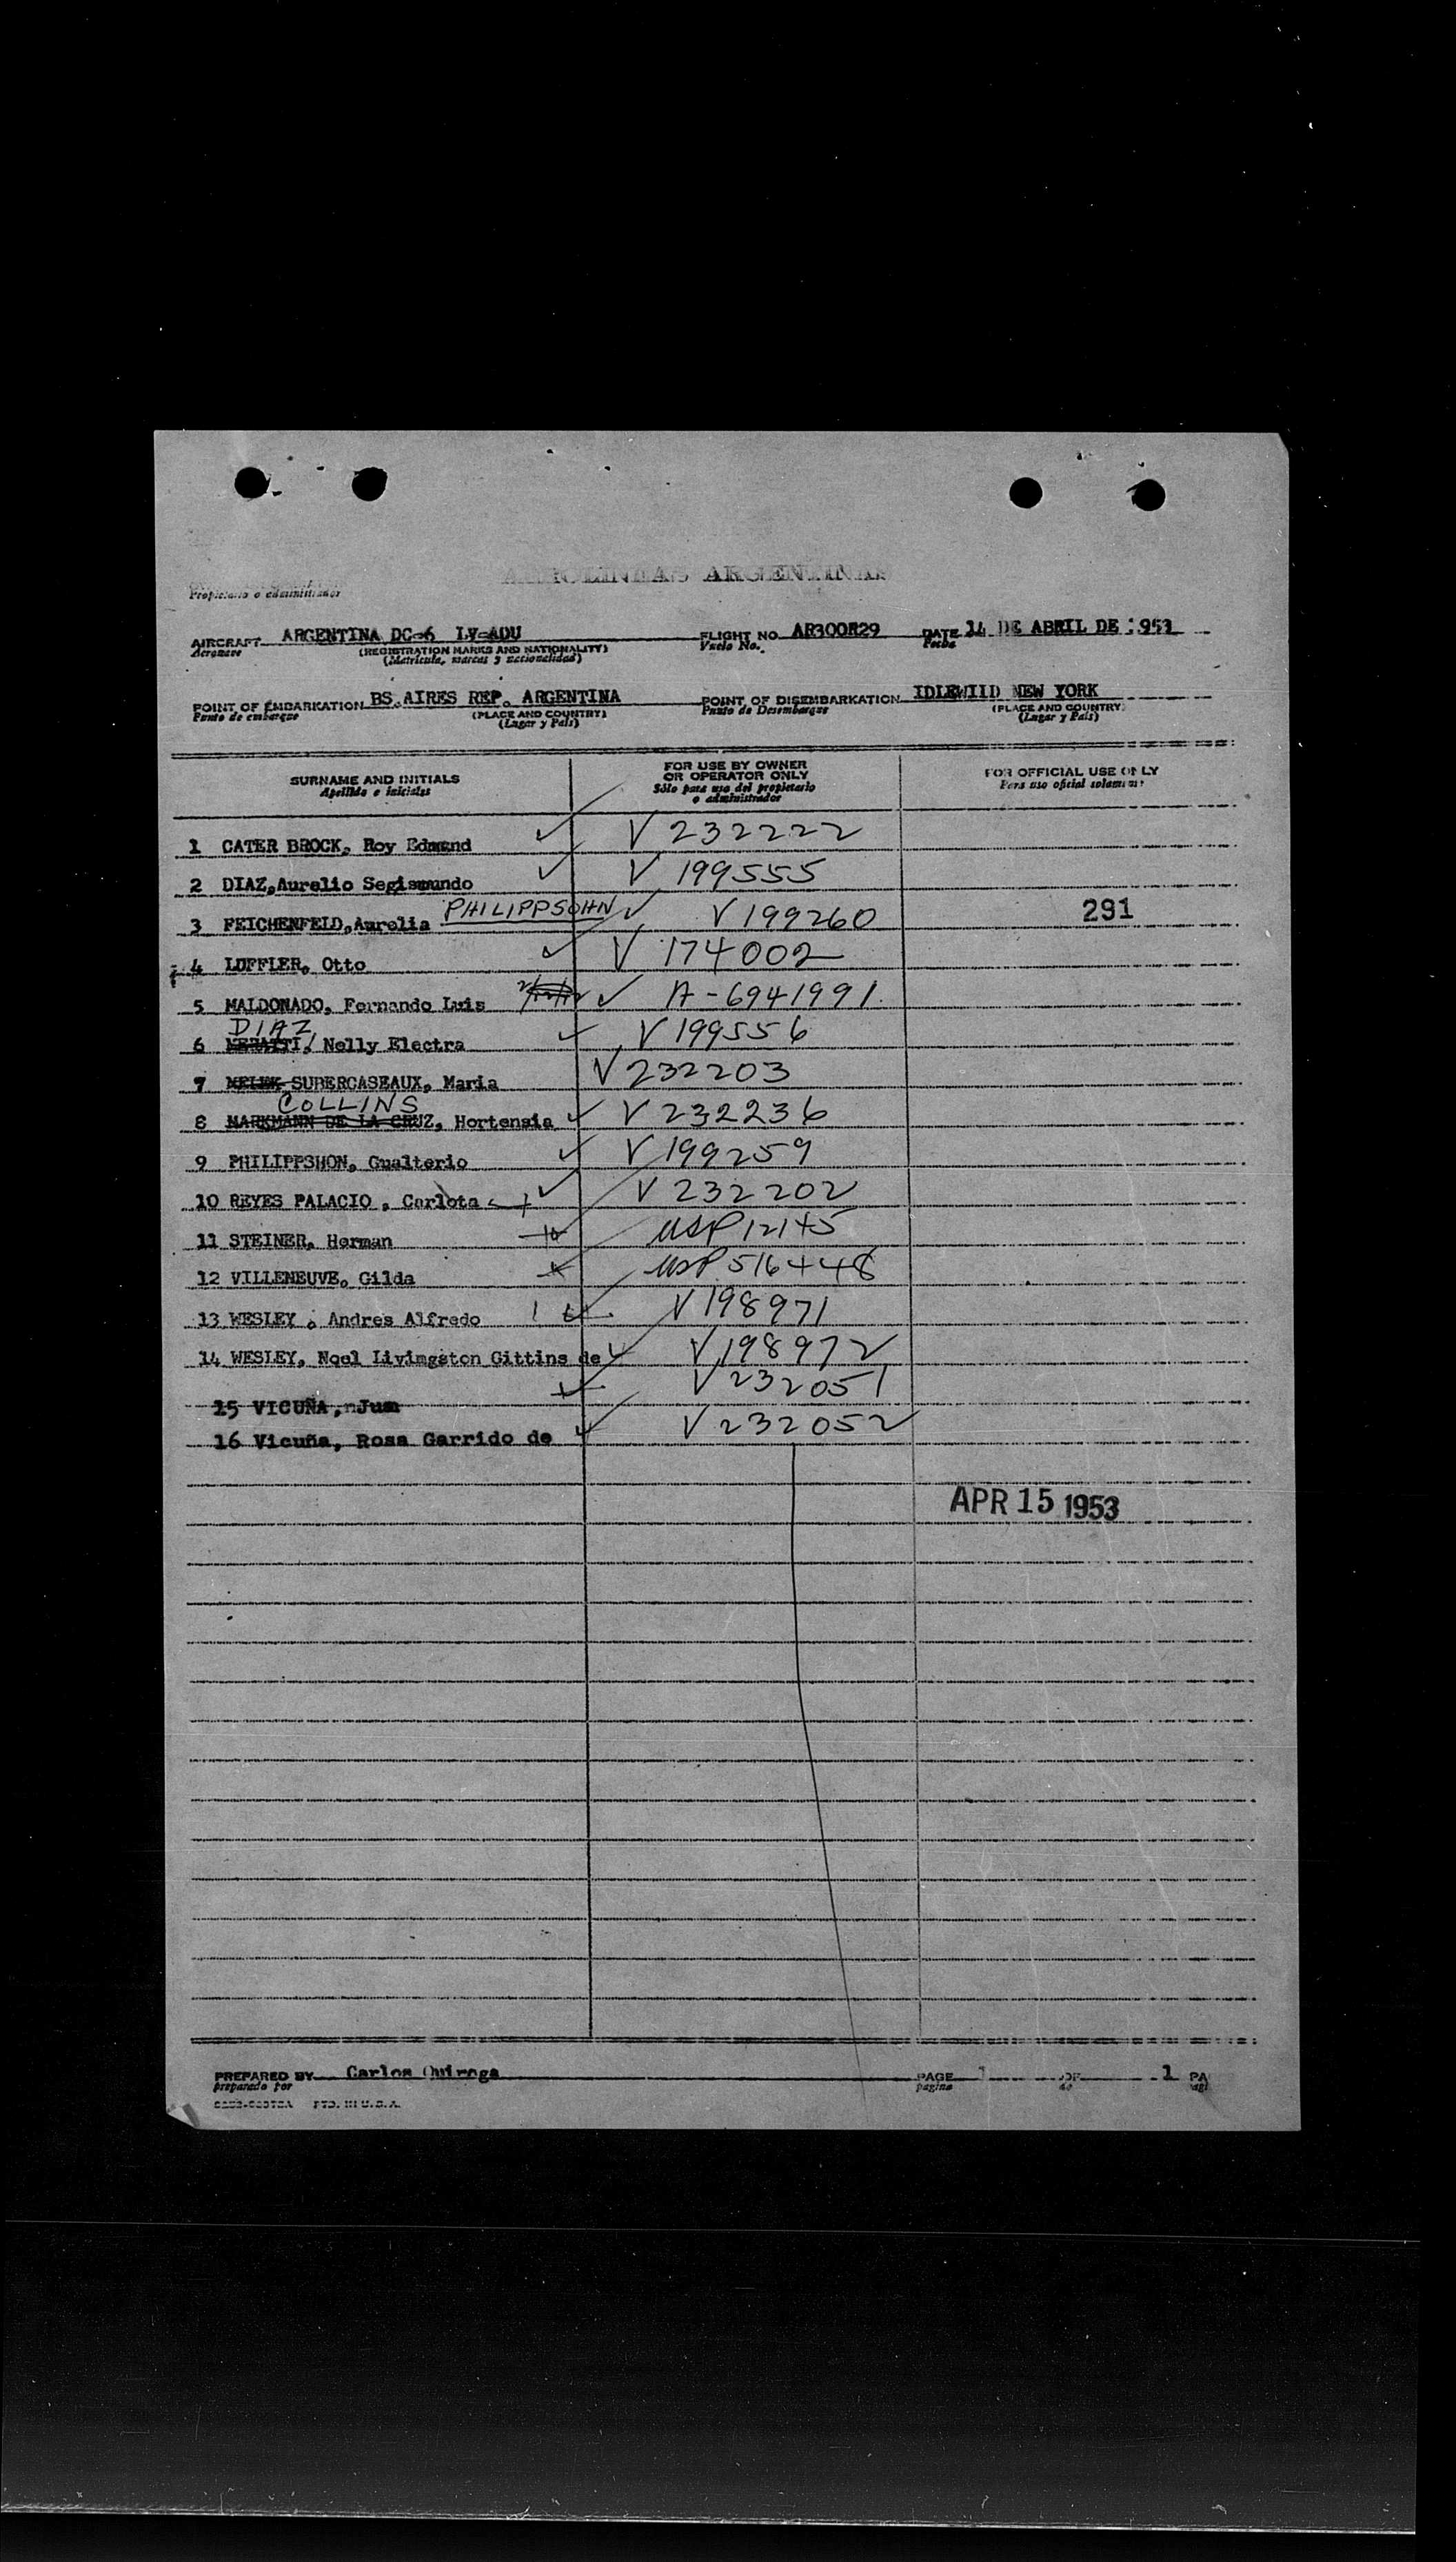 AEROLINEAS ARGENTINAS
Propietario o administrador
AIRCRAFT ARGENTINA DC-6 LV-ADU FLIGHT NO. AR300N29 DATE 14 DE ABRIL DE 1953
Aeronave (REGISTRATION MARKS AND NATIONALITY) Vuelo No. Fecha
(Matrícula, marcas y nacionalidad)
POINT OF EMBARKATION BS.AIRES REP. ARGENTINA POINT OF DISEMBARKATION IDLEWILD NEW YORK
Punto de embarque (PLACE AND COUNTRY) Punto de Desembarque (PLACE AND COUNTRY)
(Lugar y País) (Lugar y País)
SURNAME AND INITIALS FOR USE BY OWNER OR OPERATOR ONLY FOR OFFICIAL USE ONLY
Apellido e iniciales Sólo para uso del propietario o administrador Para uso oficial solamente
1 CATER BROCK, Roy Edmund V 232222
2 DIAZ,Aurelio Segismundo V 199555
3 FEICHENFELD,Aurelia PHILIPPSOHN V 199260 291
4 LOFFLER, Otto V 174002
5 MALDONADO, Fernando Luis A-6941991
DIAZ
6 Nelly Electra V 199556
7 SUBERCASEAUX, Maria V 232203
COLLINS
8 MARKMANN DE LA CRUZ, Hortensia V 232236
9 PHILIPPSHON, Gualterio V 199259
10 REYES PALACIO , Carlota V 232202
11 STEINER, Herman USP 12145
12 VILLENEUVE, Gilda USP 516448
13 WESLEY , Andres Alfredo V 198971
14 WESLEY, Noel Livimgston Gittins de V 198972
15 VICUÑA, V 232051
16 Vicuña, Rosa Garrido de V 232052
APR 15 1953
PREPARED BY Carlos Quiroga PAGE 1 OF 1 PA
preparado por pagina de pagi
PTD. IN U.S.A.